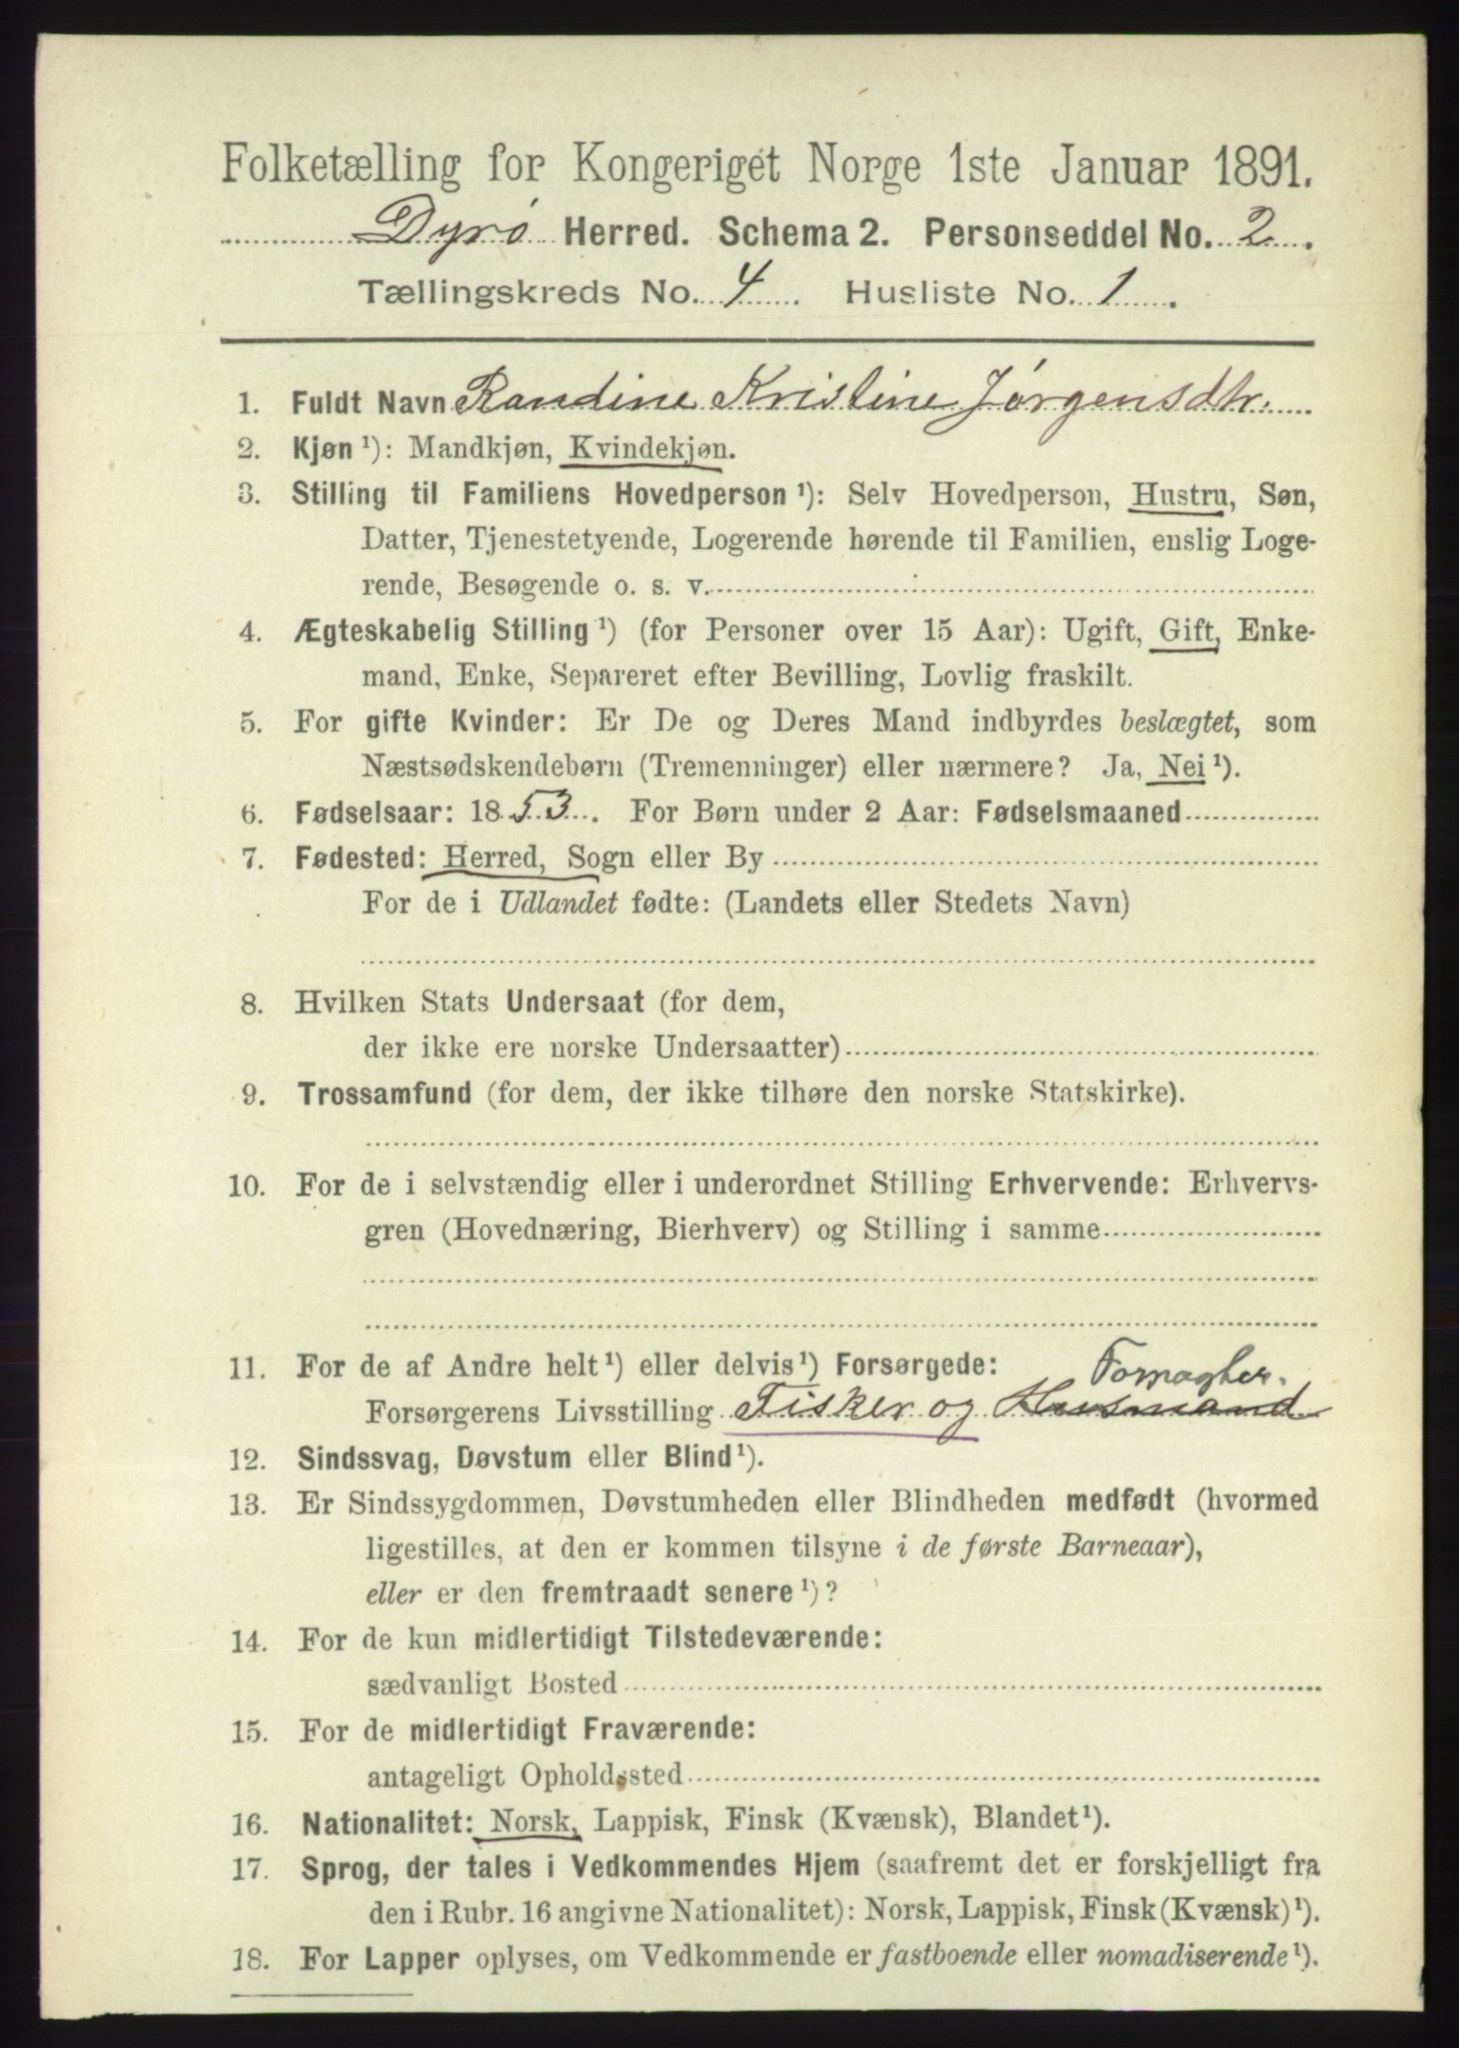 Folketælling for Kongeriget Norge 1ste Januar 1891.
Dyrø Herred. Schema 2. Personseddel No. 2.
Tællingskreds No. 4. Husliste No. 1.
1. Fuldt Navn Randine Kristine Jørgensdtr.
2. Kjøn ¹): Mandkjøn, Kvindekjøn.
3. Stilling til Familiens Hovedperson ¹): Selv Hovedperson, Hustru, Søn,
Datter, Tjenestetyende, Logerende hørende til Familien, enslig Loge-
rende, Besøgende o. s. v.
4. Ægteskabelig Stilling ¹) (for Personer over 15 Aar): Ugift, Gift, Enke-
mand, Enke, Separeret efter Bevilling, Lovlig fraskilt.
5. For gifte Kvinder: Er De og Deres Mand indbyrdes beslægtet, som
Næstsødskendebørn (Tremenninger) eller nærmere? Ja, Nei ¹).
6. Fødselsaar: 1853. For Børn under 2 Aar: Fødselsmaaned
7. Fødested: Herred, Sogn eller By
For de i Udlandet fødte: (Landets eller Stedets Navn)
8. Hvilken Stats Undersaat (for dem,
der ikke ere norske Undersaatter)
9. Trossamfund (for dem, der ikke tilhøre den norske Statskirke).
10. For de i selvstændig eller i underordnet Stilling Erhvervende: Erhvervs-
gren (Hovednæring, Bierhverv) og Stilling i samme
11. For de af Andre helt ¹) eller delvis ¹) Forsørgede: Forpagter.
Forsørgerens Livsstilling Fisker og Husmand
12. Sindssvag, Døvstum eller Blind ¹).
13. Er Sindssygdommen, Døvstumheden eller Blindheden medfødt (hvormed
ligestilles, at den er kommen tilsyne i de første Barneaar),
eller er den fremtraadt senere ¹)?
14. For de kun midlertidigt Tilstedeværende:
sædvanligt Bosted
15. For de midlertidigt Fraværende:
antageligt Opholdssted
16. Nationalitet: Norsk, Lappisk, Finsk (Kvænsk), Blandet ¹).
17. Sprog, der tales i Vedkommendes Hjem (saafremt det er forskjelligt fra
den i Rubr. 16 angivne Nationalitet): Norsk, Lappisk, Finsk (Kvænsk) ¹).
18. For Lapper oplyses, om Vedkommende er fastboende eller nomadiserende ¹).